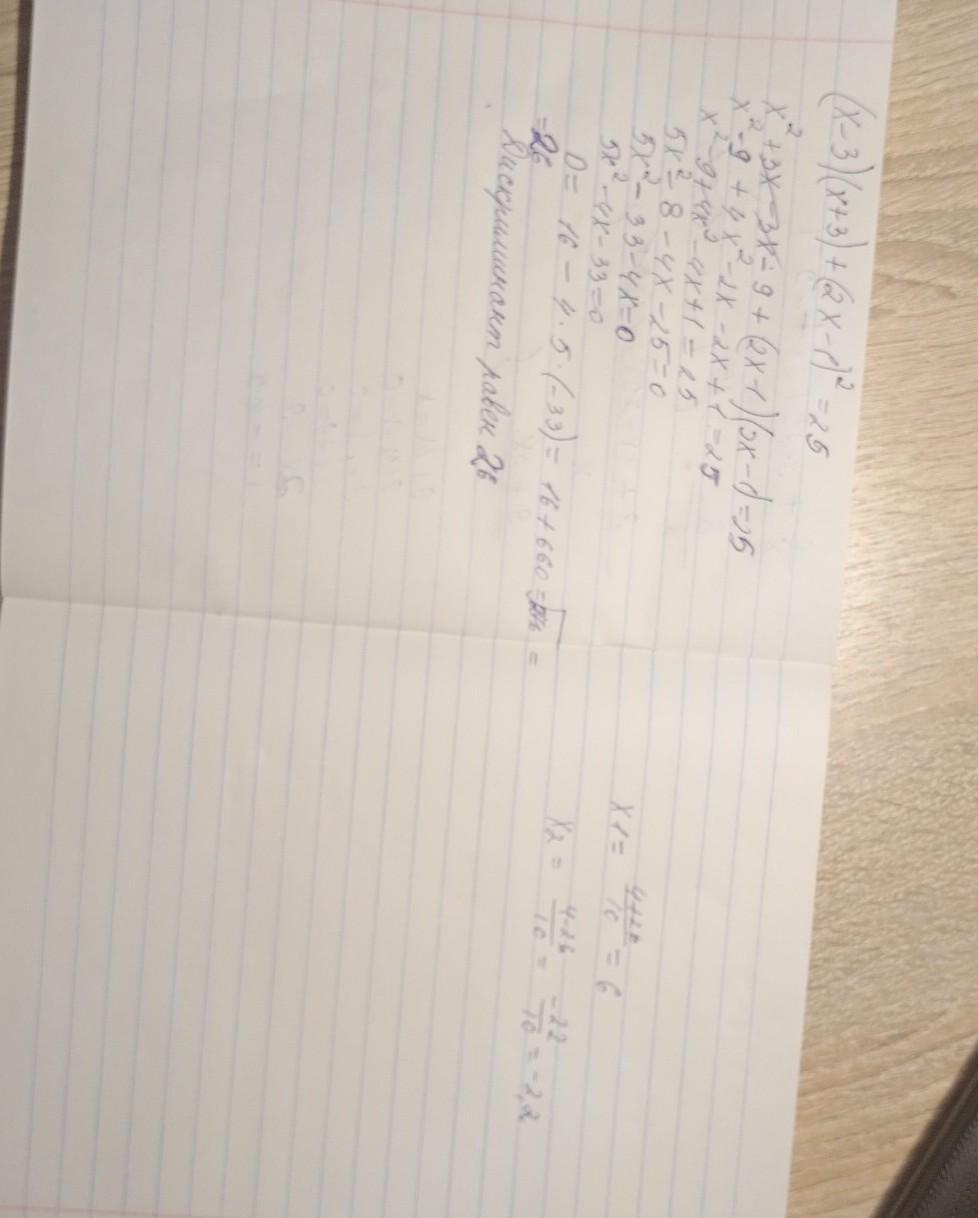 (x-3)(x+3)+(2x-1)² = 25
x²+3x-3x-9+(2x-1)(2x-1)=25
x²-9+4x²-2x-2x+1=25
x²-9+4x²-4x+1=25
5x²-8-4x-25=0
5x²-33-4x=0
5x²-4x-33=0
D= 16-4·5·(-33)= 16+660=√676 =
=26
Дискриминант равен 26
x1= 4+26/10 = 6
x2 = 4-26/10 = -22/10 = -2,2